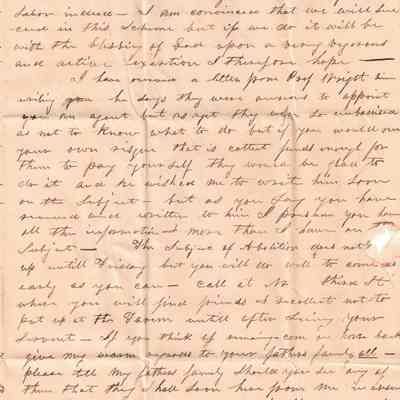 labor induce — I am convinced that we will suc
ceed in this Scheme but if we do it will be
with the blessing of God upon a very vigorous
and active exertion I therefore hope —
I have received a letter from Prof Wright in
writing he says they were anxious to appoint
an agent but as yet they were so embarrassed
as not to know what to do but if you would on
your own risque that is collect funds enough for
them to pay yourself they would be glad to
do it and he wished me to write him soon
on the Subject — but as you say you have
received and written to him I presume you have
all the information & more than I have on the
Subject — The Subject of Abolition does not
up untill Friday but you will do well to come as
early as you can — Call at No Third St
where you will find friends & recollect not to
put up at the Tavern untill after seeing your
Servant — If you think of coming on or back
give my warm regards to your fathers family all —
please tell my fathers family should you see any of
them that they shall soon hear from me in